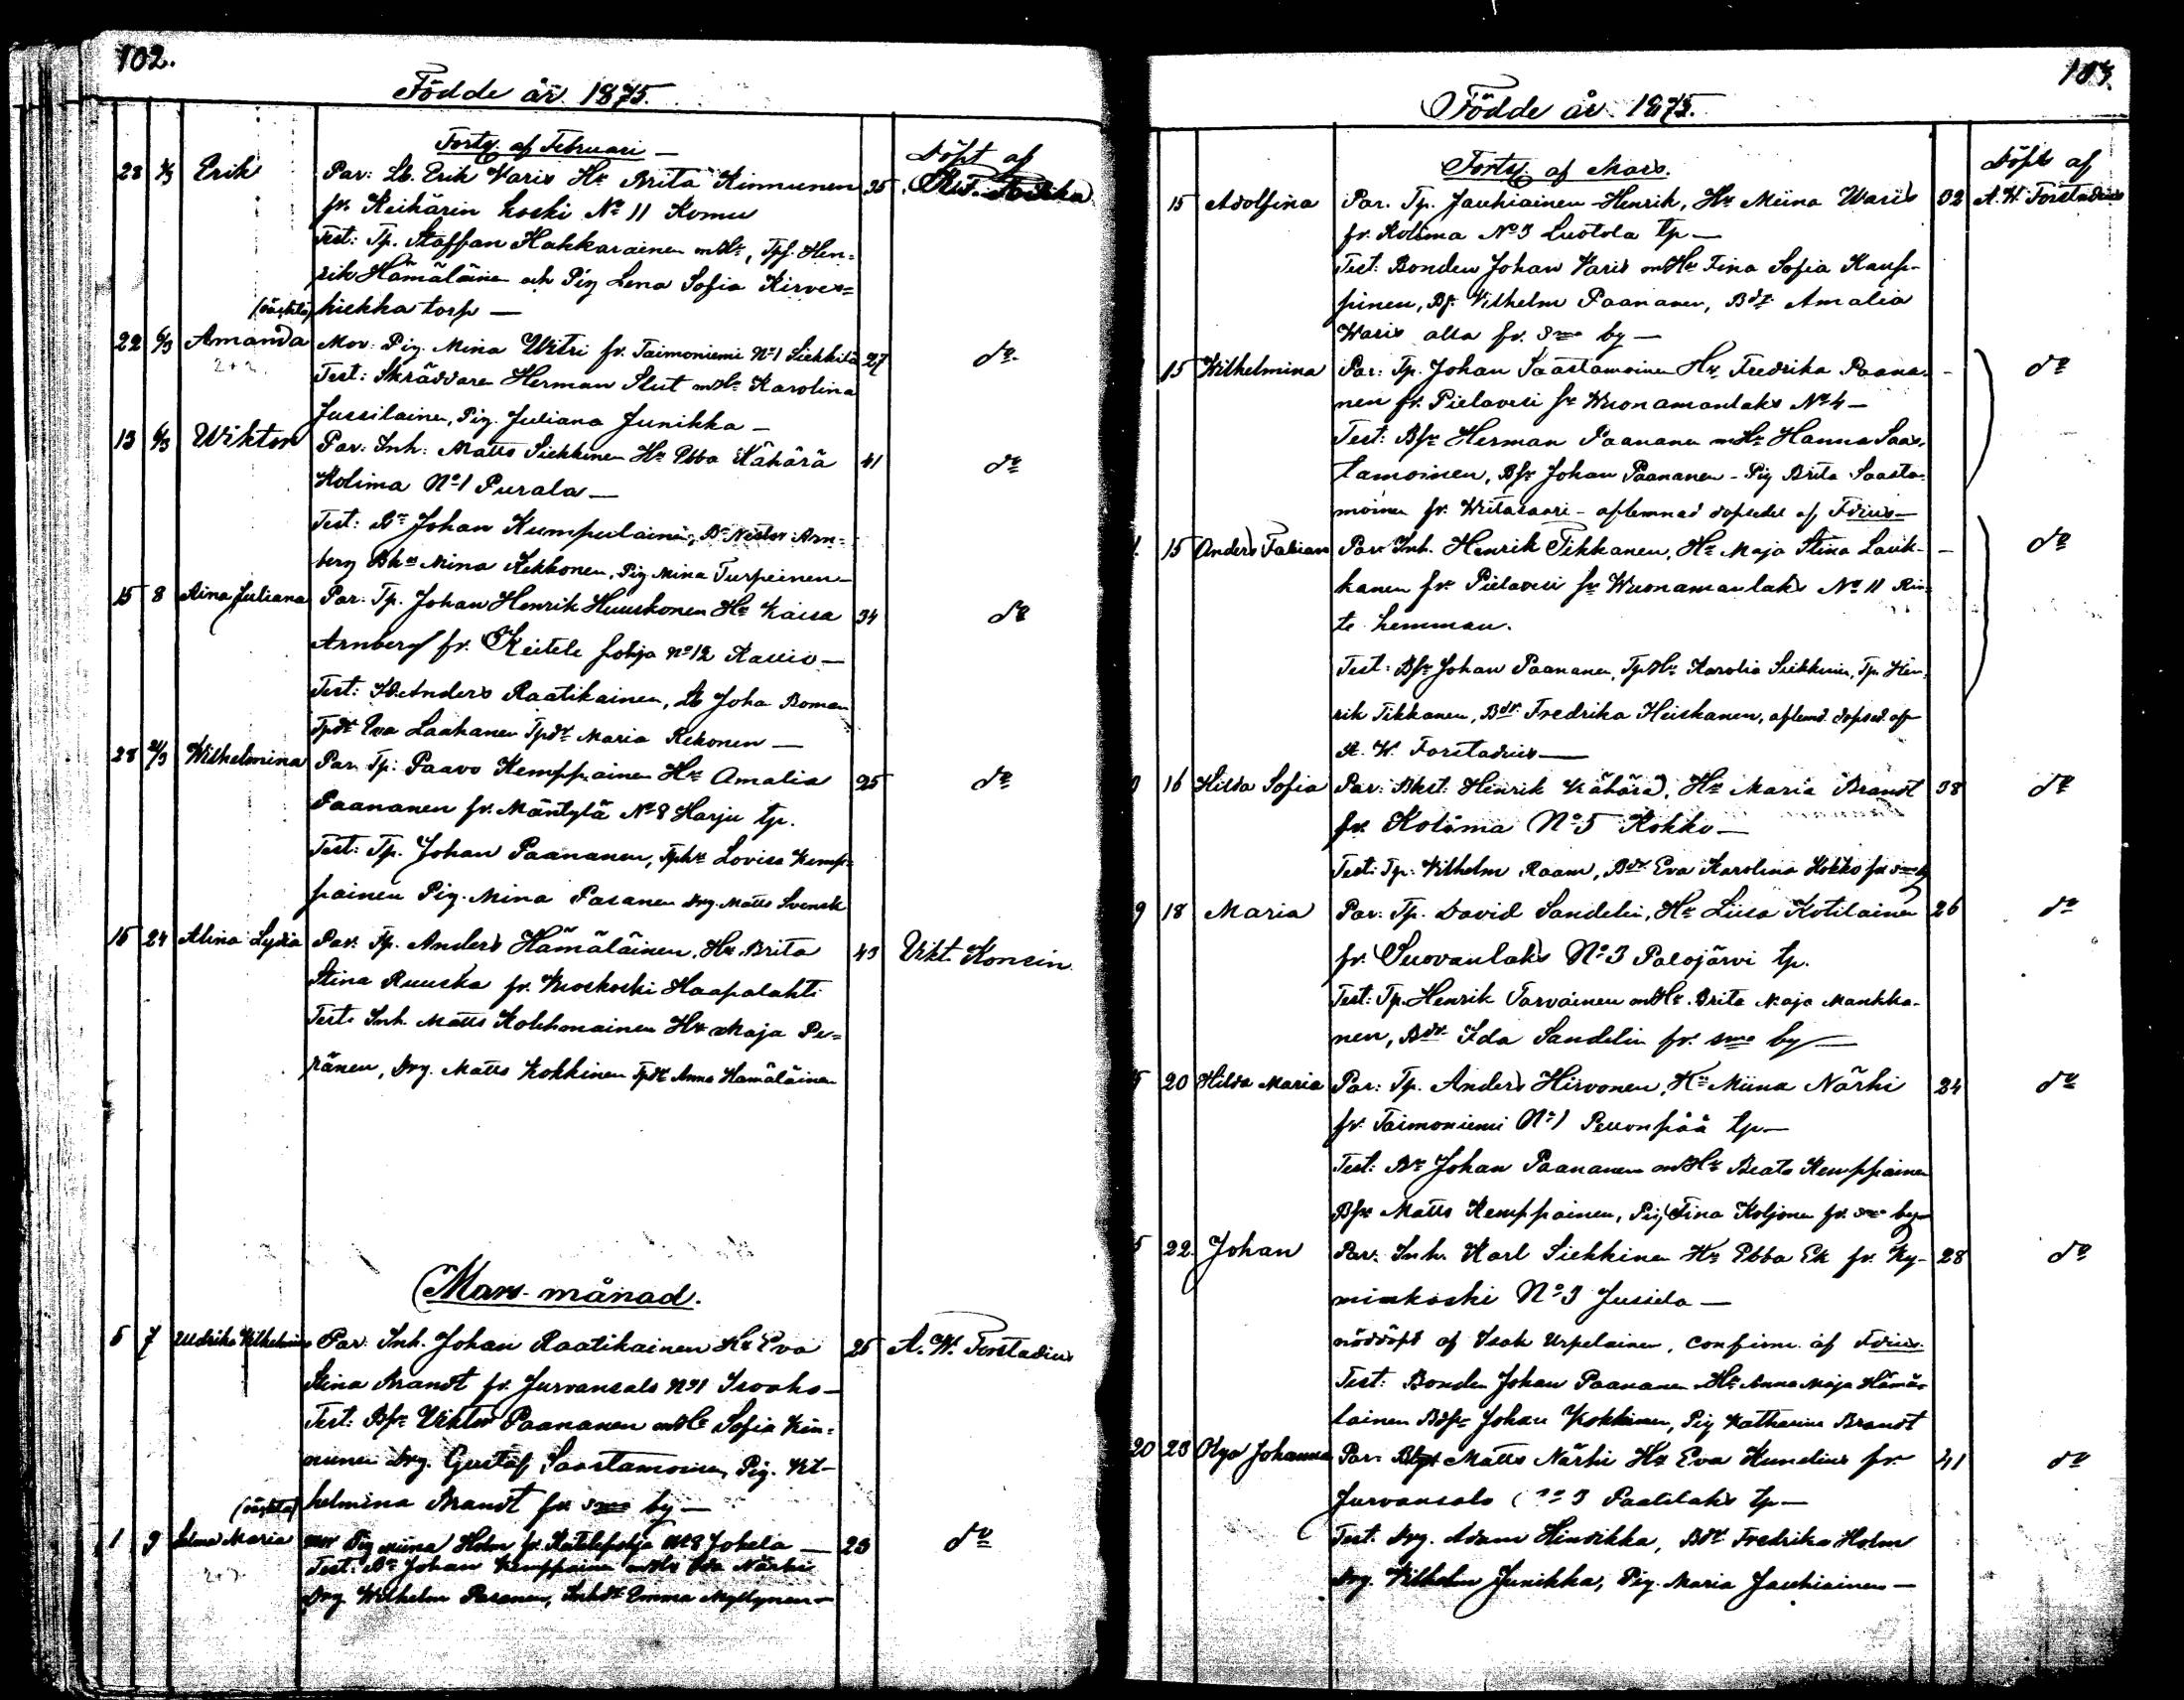 102.
Födde år 1875.
Forts. af Februari —
Döpt af
28 Erik Par: Lb. Erik Varis Hu Brita Kinnunen 35
fr. Keihärin koski No 11 Komu
Test: Tp. Staffan Hakkarainen m Hu, Tpf. Hen=
rik Hämäläinen och Pig Lena Sofia Kirves=
(oäkta) hiekka torp —
22 6/3 Amanda Mor: Pig. Mina Witri fr. Taimoniemi No 1 Siekkilä 27 do
Test: Skräddare Herman Slut m Hu Karolina
Jussilainen, Pig. Juliana Junikka —
13 6/3 Wiktor Par: Inh: Matts Siekkinen Hu Ebba Kähärä 41 do
Kolima No 1 Purala —
Test: Br Johan Kumpulainen, Br Nestor Arn=
berg Bhu Mina Kekkonen, Pig Mina Turpeinen —
15 8 Aina Juliana Par: Tp. Johan Henrik Huuskonen Hu Kaisa 34 do
Arnberg fr. Keitele pohja No 12 Kallio —
Test: Anders Raatikainen, Lb Joha Boman
Tpdr Eva Laahanen Tpdr Maria Rekonen —
28 Wilhelmina Par. Tp: Paavo Kemppainen Hu Amalia 25 do
Paananen fr. Mäntylä No 8 Harju tp.
Test: Tp. Johan Paananen, Tphu Lovisa Kemp=
painen Pig. Mina Pasanen Drg. Matts Svensk
15 24 Alina Lydia Par. Tp. Anders Hämäläinen, Hu Brita 43 Vikt. Konsin
Stina Ruuska fr. Kuoskoski Haapalahti
Test. Inh. Matts Kolehmainen Hu Maja Pe=
ränen, Drg. Matts Kokkinen Tpdr Anna Hämäläinen
Mars-månad.
5 7 Uldrika Wilhelmina Par. Inh. Johan Raatikainen Hu Eva 25 A. W. Forstadius
Stina Brandt fr. Jurvansalo No 1 Isoaho —
Test: Bsr Viktor Paananen m Hu Sofia Kin=
nunen Drg. Gustaf Saastamoinen, Pig. Wil-
(oäkta) helmina Brandt fr. sme by —
1 9 Selma Maria Mor Pig Miina Holm fr. Keitelepohja No 8 Jokela — 23 do
Test: Br Johan Kemppainen m Hu Närhi
Drg Wilhelm Pasanen, Inhdr Emma Myllynen —
103.
Födde år 1875.
Forts. af Mars.
Döpte af
15 Adolfina Par. Tp. Jauhiainen Henrik, Hu Miina Waris 32 A. W. Forstadius
fr. Kolima No 3 Luotola tp —
Test: Bonden Johan Varis m Hu Fina Sofia Kaup-
pinen, Bs. Wilhelm Paananen, Bdr Amalia
Waris alla fr. sme by —
15 Wilhelmina Par: Tp. Johan Saastamoinen Hu Fredrika Paana- — do
nen fr. Pielavesi sn Wuonamanlaks No 4 —
Test: Bsr Herman Paananen m Hu Hanna Saas-
tamoinen, Bsr Johan Paananen - Pig Brita Saasta-
moinen fr. Witasaari - aflemnad dopsedel af Fdius —
15 Anders Fabian Par: Inh. Henrik Tikkanen, Hu Maja Stina Lauk- — do
kanen fr. Pielavesi sn Wuonamanlaks No 11 Rin-
te hemman.
Test: Bsr Johan Paananen, Tp Hu Karolia Siekkinen, Tp. Hen-
rik Tikkanen, Bdr. Fredrika Heiskanen, aflemd. dopsed. af
A. W. Forstadius —
16 Hilda Sofia Par: Bkst. Henrik Kähärä, Hu Maria Brandt 38 do
fr. Kolima No 5 Kokko —
Test: Tp. Wilhelm Raam, Bdr Eva Karolina Kokko fr sme by
9 18 Maria Par. Tp. David Sandelin, Hu Liisa Kotilainen 26 do
fr. Suovanlaks No 3 Palojärvi tp.
Test: Tp. Henrik Tarvainen m Hu. Brita Maja Mankka-
nen, Bdr Ida Sandelin fr. sme by —
20 Hilda Maria Par: Tp. Anders Hirvonen, Hu Miina Närhi 24 do
fr. Taimoniemi No 1 Peuonpää tp —
Test: Br Johan Paananen m Hu Beata Kemppainen
Bsr Matts Kemppainen, Pig Fina Koljonen fr. sme by —
5 22. Johan Par: Inh. Karl Siekkinen Hu Ebba Ek fr. Ky- 28 do
minkoski No 3 Jussila —
nöddöpt af Isak Urpelainen, confirm. af Fdius.
Test: Bonden Johan Paananen Hu Anna Maja Hämä-
lainen Bdsr Johan Kokkinen, Pig Katharina Brandt
20 23 Olga Johanna Par. Matts Närhi Hu Eva Hundius fr. 41 do
Jurvansalo No 3 Paatelaks tp —
Test. Drg. Adam Hindikka, Bdr Fredrika Holm
Drg. Wilhelm Junikka, Pig. Maria Jauhiainen —